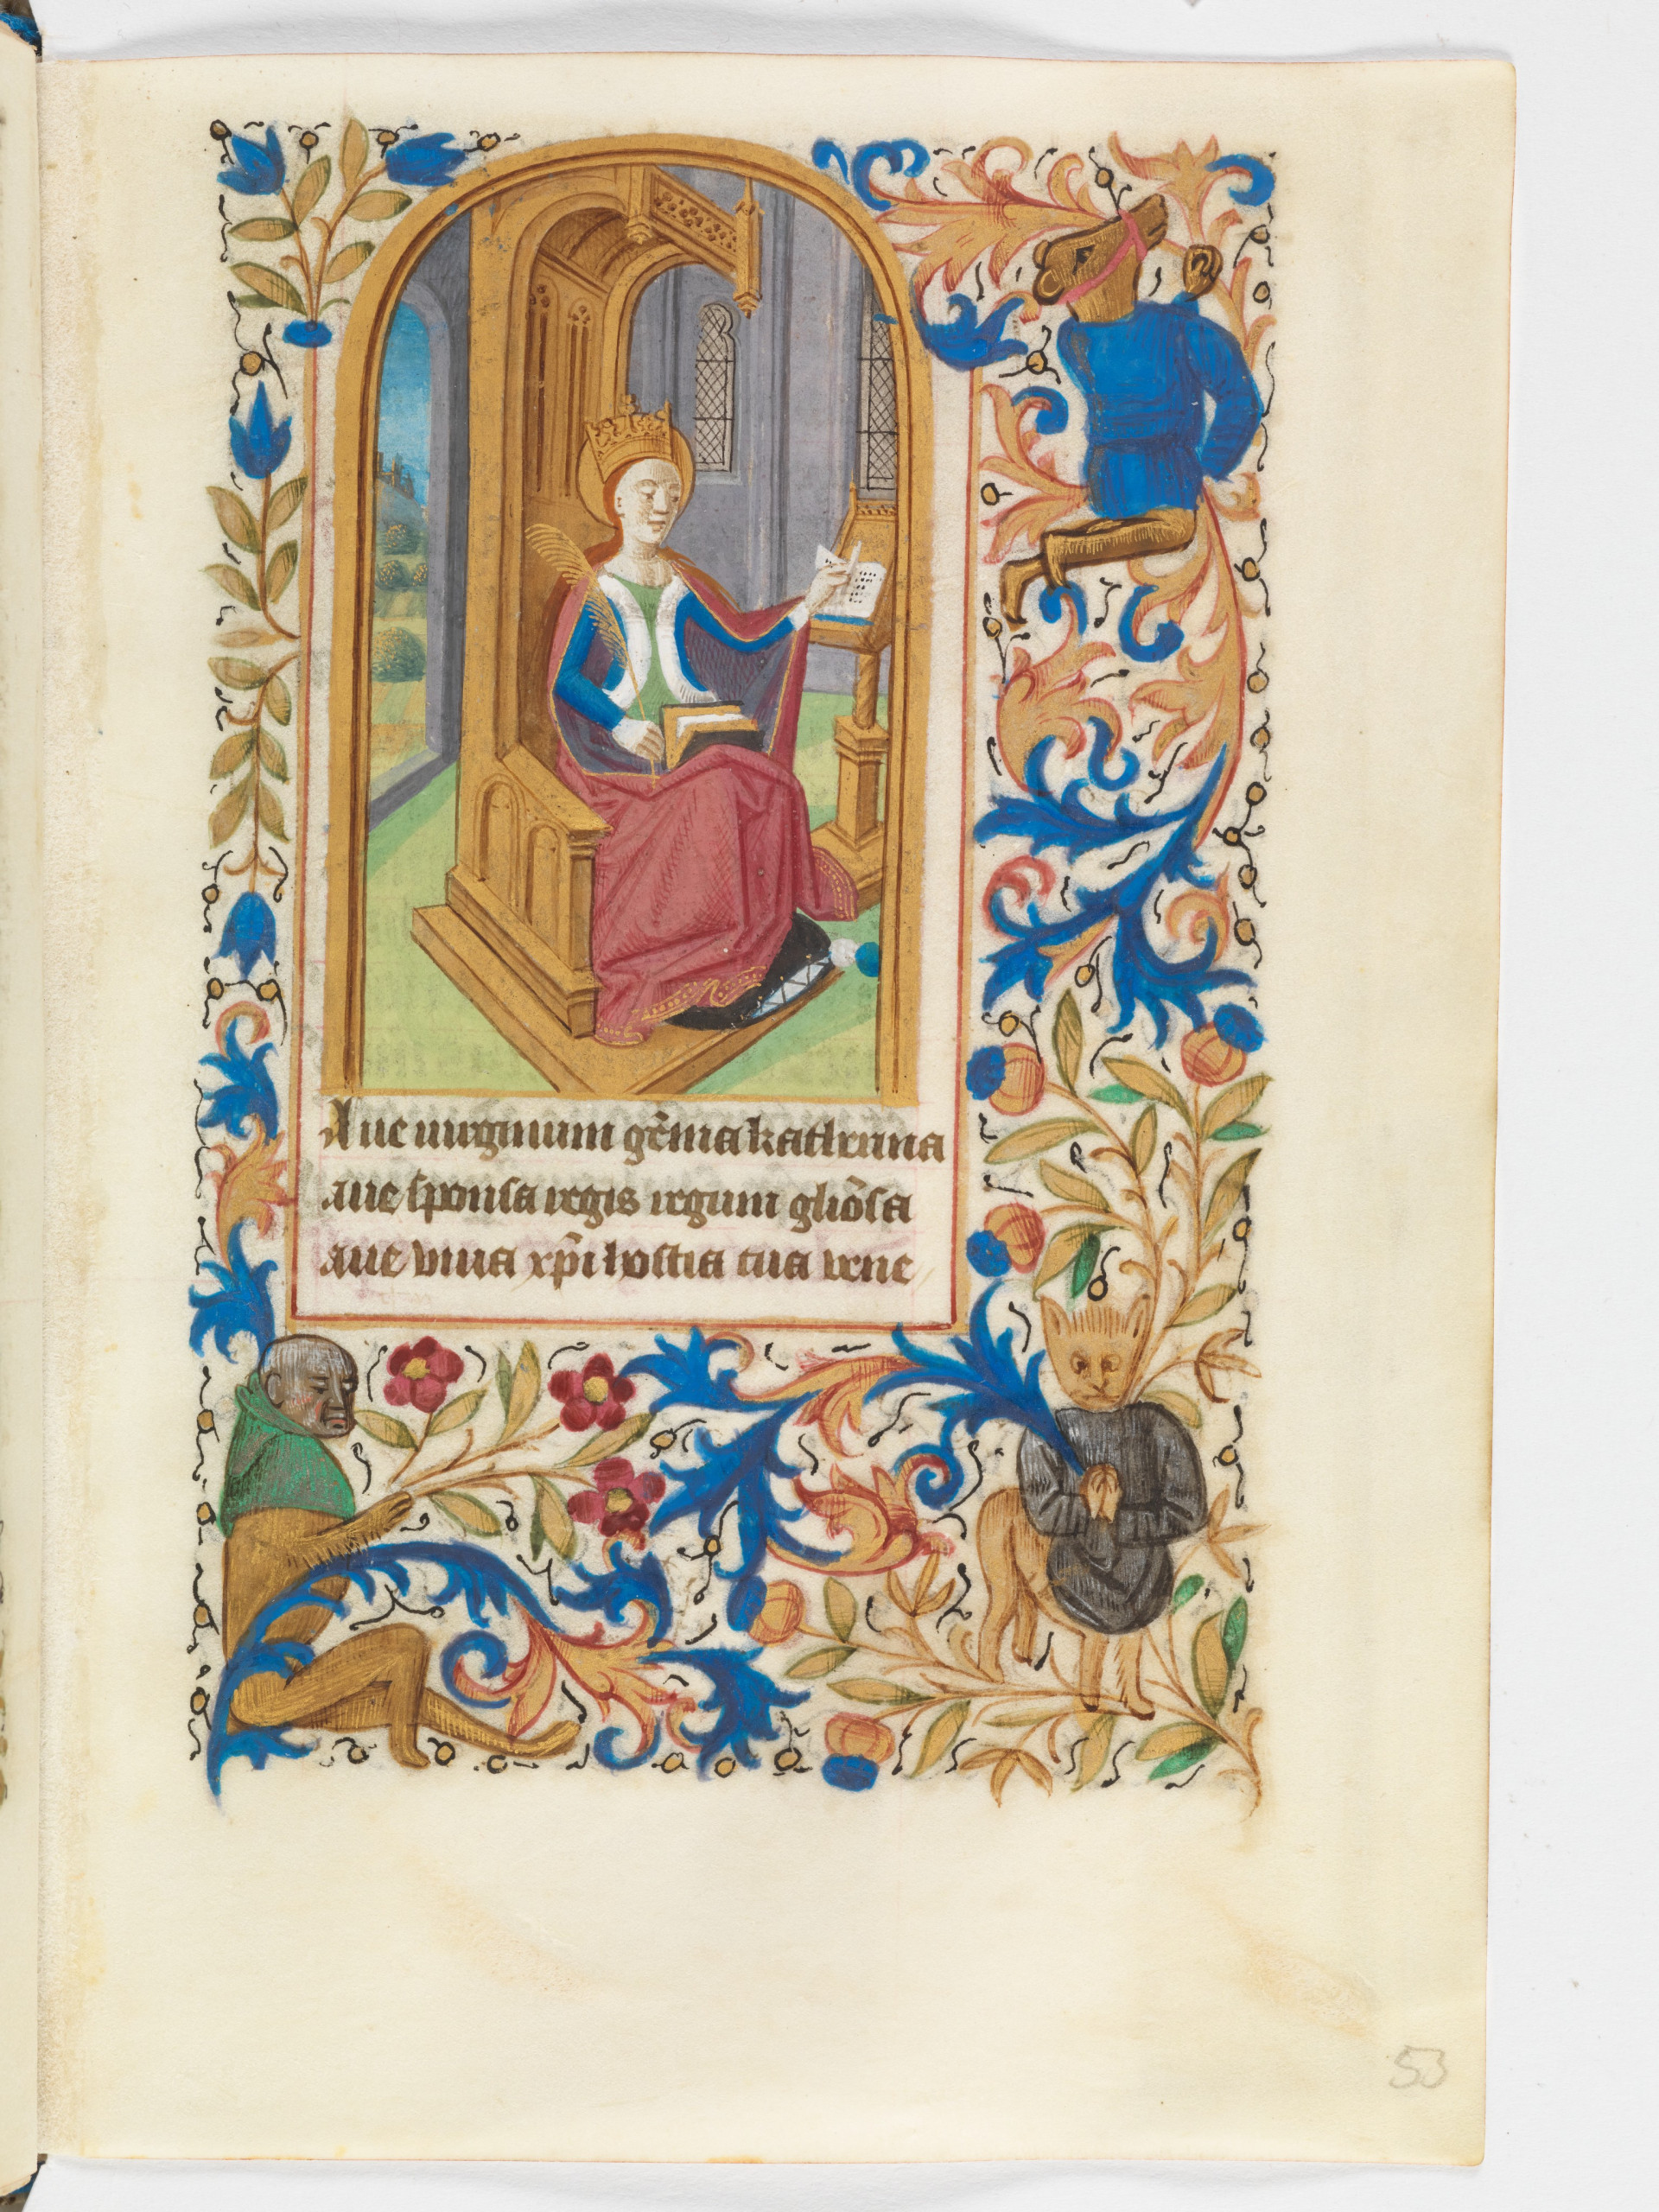 Aue uirginum gẽma katherina
aue sponsa regis regum gliõsa
aue viua xp̃i hostia tua vene
53